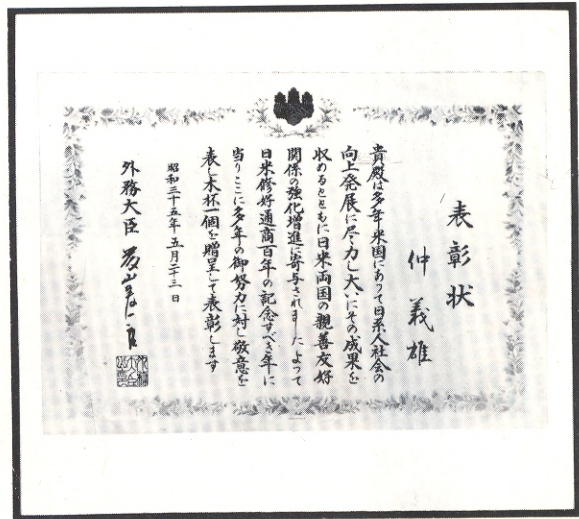 表彰状
仲義雄
貴殿は多年米国にあって日系人社会の
向上発展に尽力し大いにその成果を
収めるとともに日米両国の親善友好
関係の強化増進に寄与されました よって
日米修好通商百年の記念すべき年に
当りここに多年の御努力に対し敬意を
表し木杯一個を贈呈して表彰します
昭和三十五年五月二十三日
外務大臣 藤山愛一郎